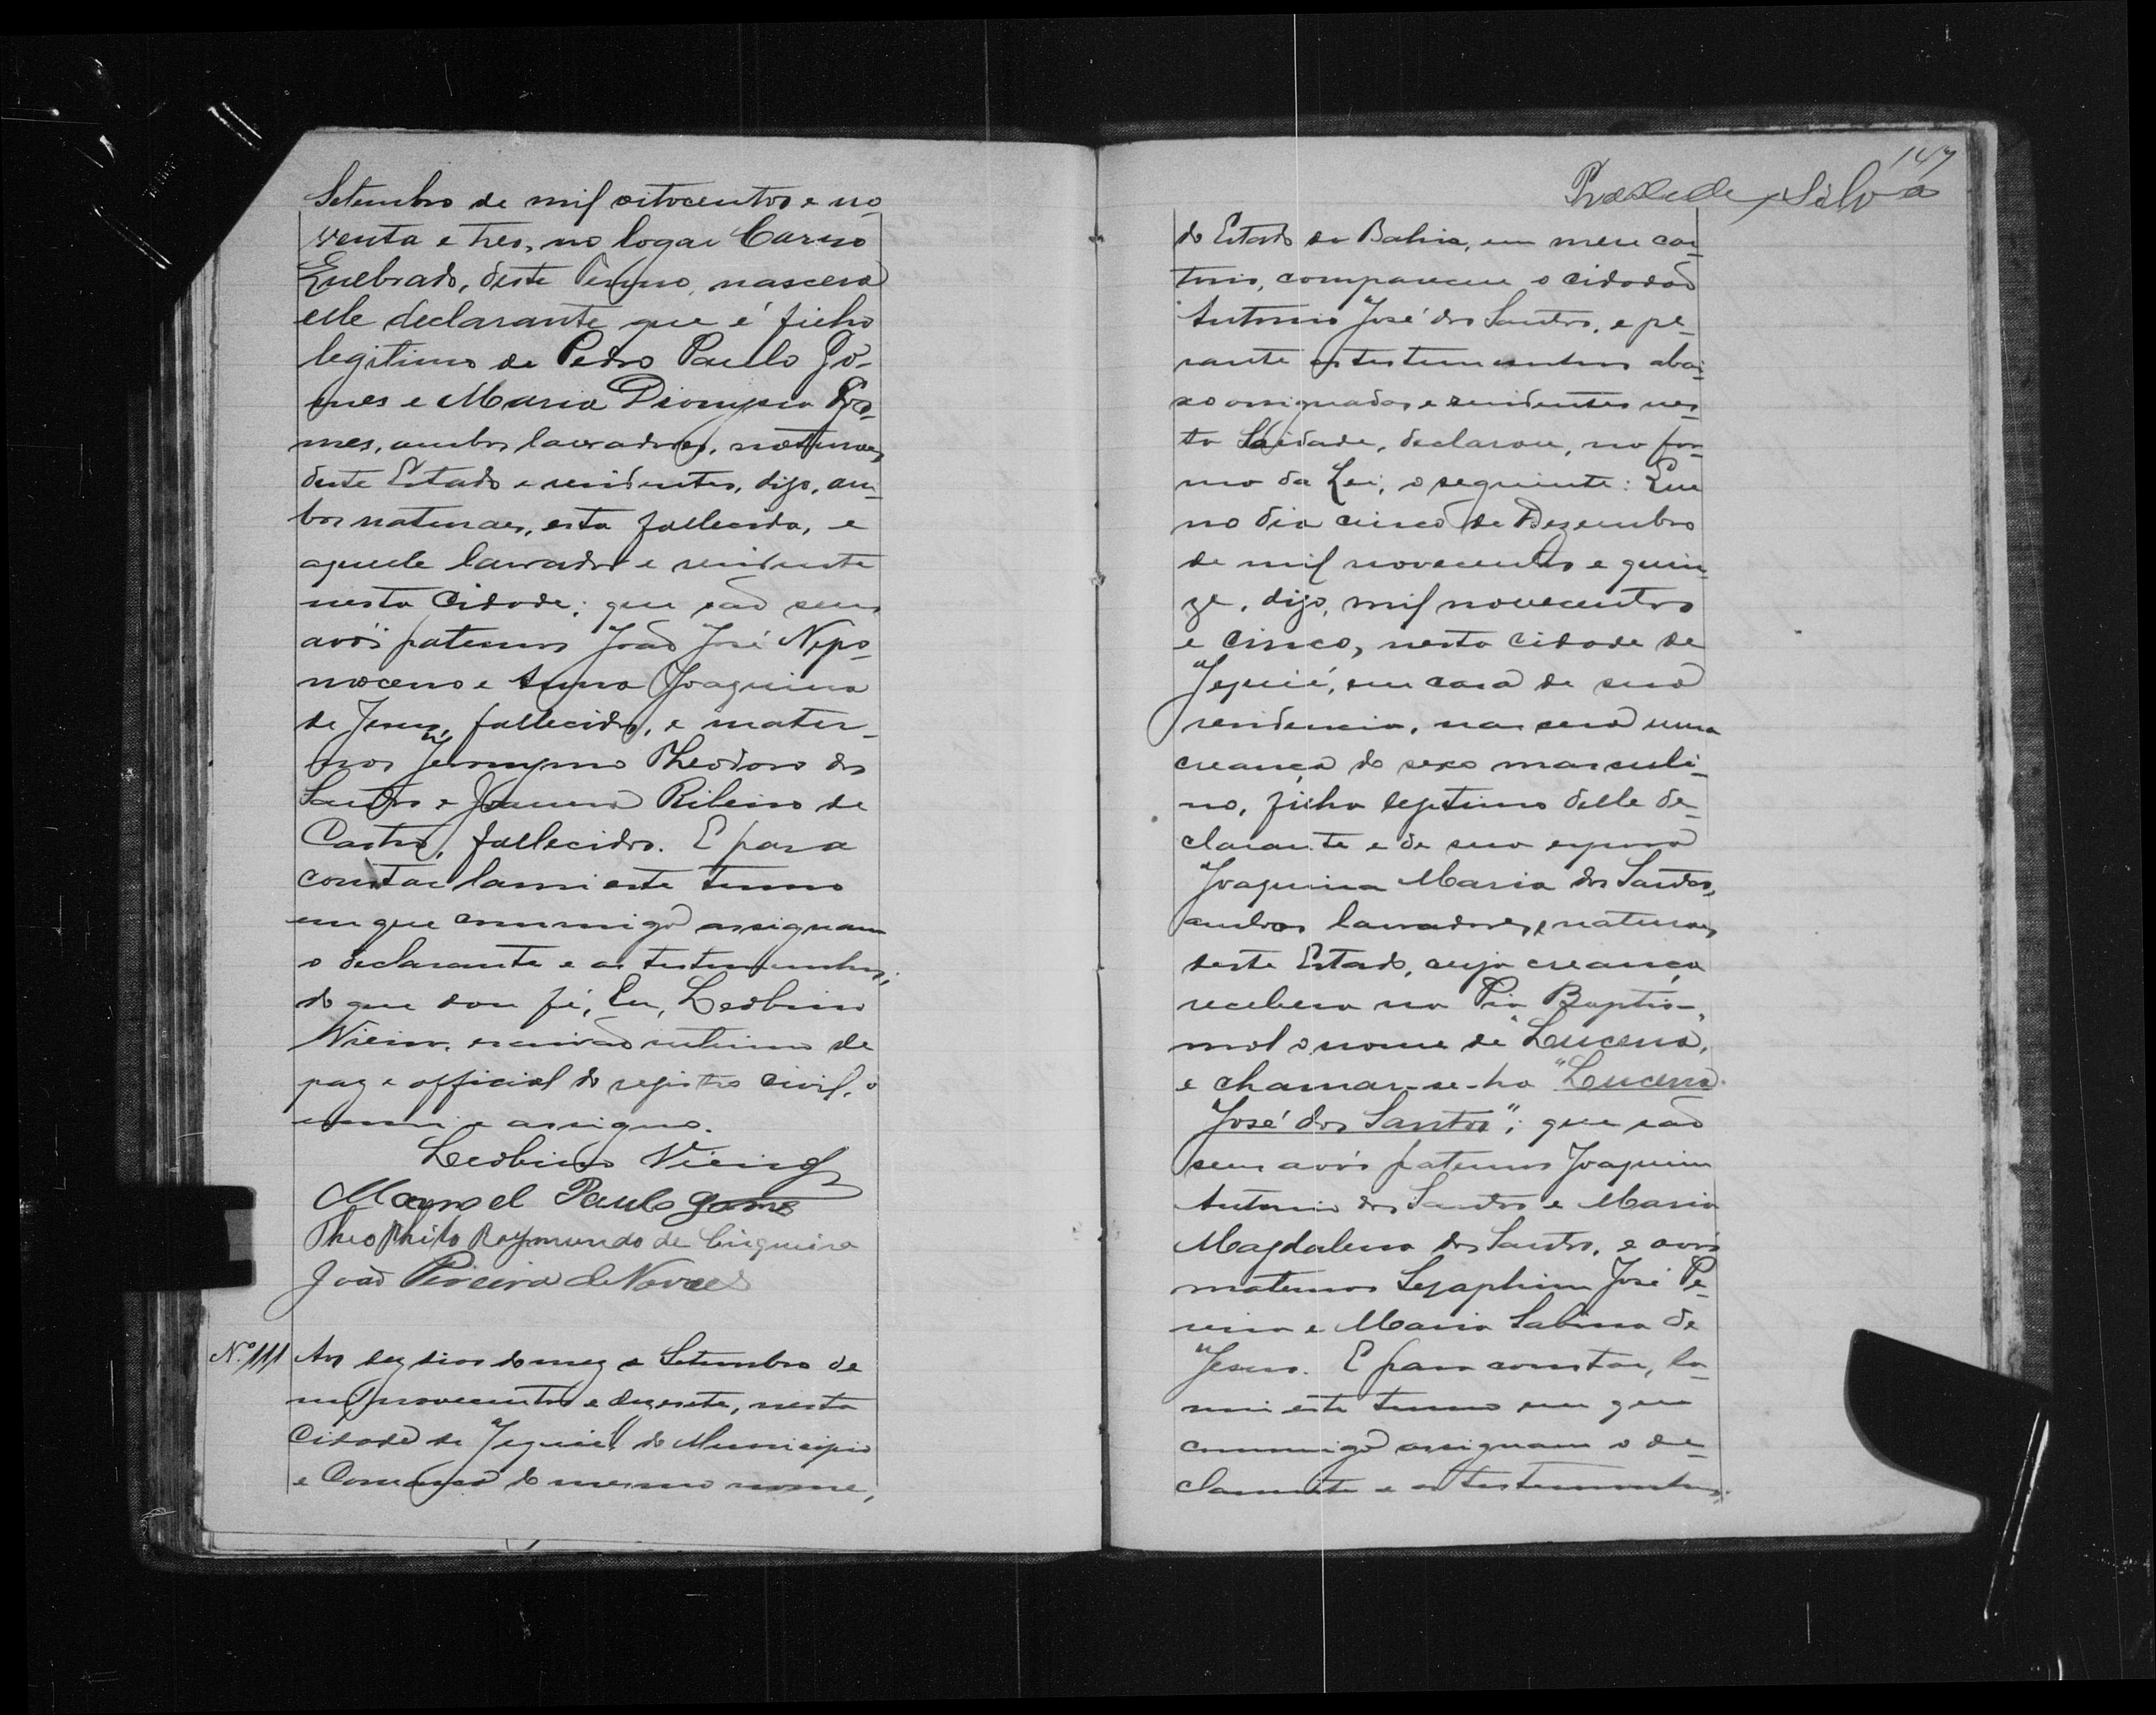 Setembro de mil oitocentos e no-
venta e tres, no logar Carro
Quebrado, deste Termo, nascera
elle declarante que é filho
legitimo de Pedro Paulo Go-
mes e Maria Dionysia Go-
mes, ambos lavradores, naturaes
deste Estado e residentes, digo, am-
bos naturaes, esta fallecida, e
aquele lavrador e residente
nesta Cidade; que são seus
avós paternos João José Nepo-
moceno e Anna Joaquina
de Jesus, fallecidos, e mater-
nos Jeronymo Theodoro dos
Santos e Joanna Ribeiro de
Castro, fallecidos. E para
constar lavrei este termo
em que commigo assignam
o declarante e as testemunhas;
do que dou fé, Eu, Leobino
Vieira, escrivão interino de
paz e official do registro civil, o
escrevi e assigno.
Leobino Vieira
Manoel Paulo Gomes
Theophilo Raymundo de Cirqueira
João Pereira de Novaes
Nº 111 Aos dez dias do mez de Setembro de
mil novecentos e dezesete, nesta
Cidade de Jequié, do Municipio
e Comarca do mesmo nome,
147
Silva
do Estado da Bahia, em meu car-
torio, compareceu o cidadão
Antonio José dos Santos, e pe-
rante as testemunhas abai-
xo assignadas e residentes nes-
ta Cidade, declarou, na for-
ma da Lei, o seguinte: Que
no dia cinco de Dezembro
de mil novecentos e quin-
ze, digo, mil novecentos
e cinco, nesta cidade de
Jequié, em casa de sua
residencia, nascera uma
creança do sexo masculi-
no, filho legitimo delle de-
clarante e de sua esposa
Joaquina Maria dos Santos,
ambos lavradores, naturaes
deste Estado, cuja creança
recebera na Pia Baptis-
mal o nome de "Lucena",
e chamar-se-ha "Lucena
José dos Santos"; que são
seus avós paternos Joaquim
Antonio dos Santos e Maria
Magdalena dos Santos, e avós
maternos Seraphim José Pe-
reira e Maria Sabina de
Jesus. E para constar, la-
vrei este termo em que
commigo assignam o de-
clarante e as testemunhas;